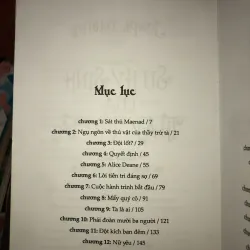 Mục lục
chương 1: Sát thủ Maenad / 7
chương 2: Ngụ ngôn về thú vật của thầy trừ tà / 21
chương 3: Đội lốt? / 29
chương 4: Quyết định / 45
chương 5: Alice Deane / 55
chương 6: Lời tiên tri đáng sợ / 65
chương 7: Cuộc hành trình bắt đầu / 79
chương 8: Mấy quý cô / 91
chương 9: Ta là ai / 105
chương 10: Phái đoàn mười ba người / 121
chương 11: Đột kích ban đêm / 133
chương 12: Nữ yêu / 145